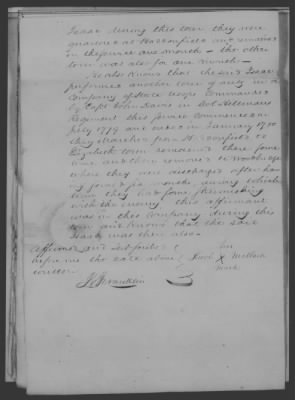 Isaac during this tour they were
quartered at Bloomfield and remained
in the service one month — the other
tour was also for one month —
He also knows that the said Isaac
performed another tour of duty in a
Company of State troops Commanded
by Capt John Davis in Col
Regiment this service commenced in
July 1779 and ended in January 1780
they Marched from Bloomfield to
Elizabeth town remained there some
time and then removed to Woodbridge
where they were discharged after ha-
ving served six months, during which
time they had some skirmishing
with the enemy, this affirmant
was in this Company during this
tour and knows that the said
Isaac was there also —
Affirmed and subscribed
before me the date above
written
his
X
mark
J Franklin